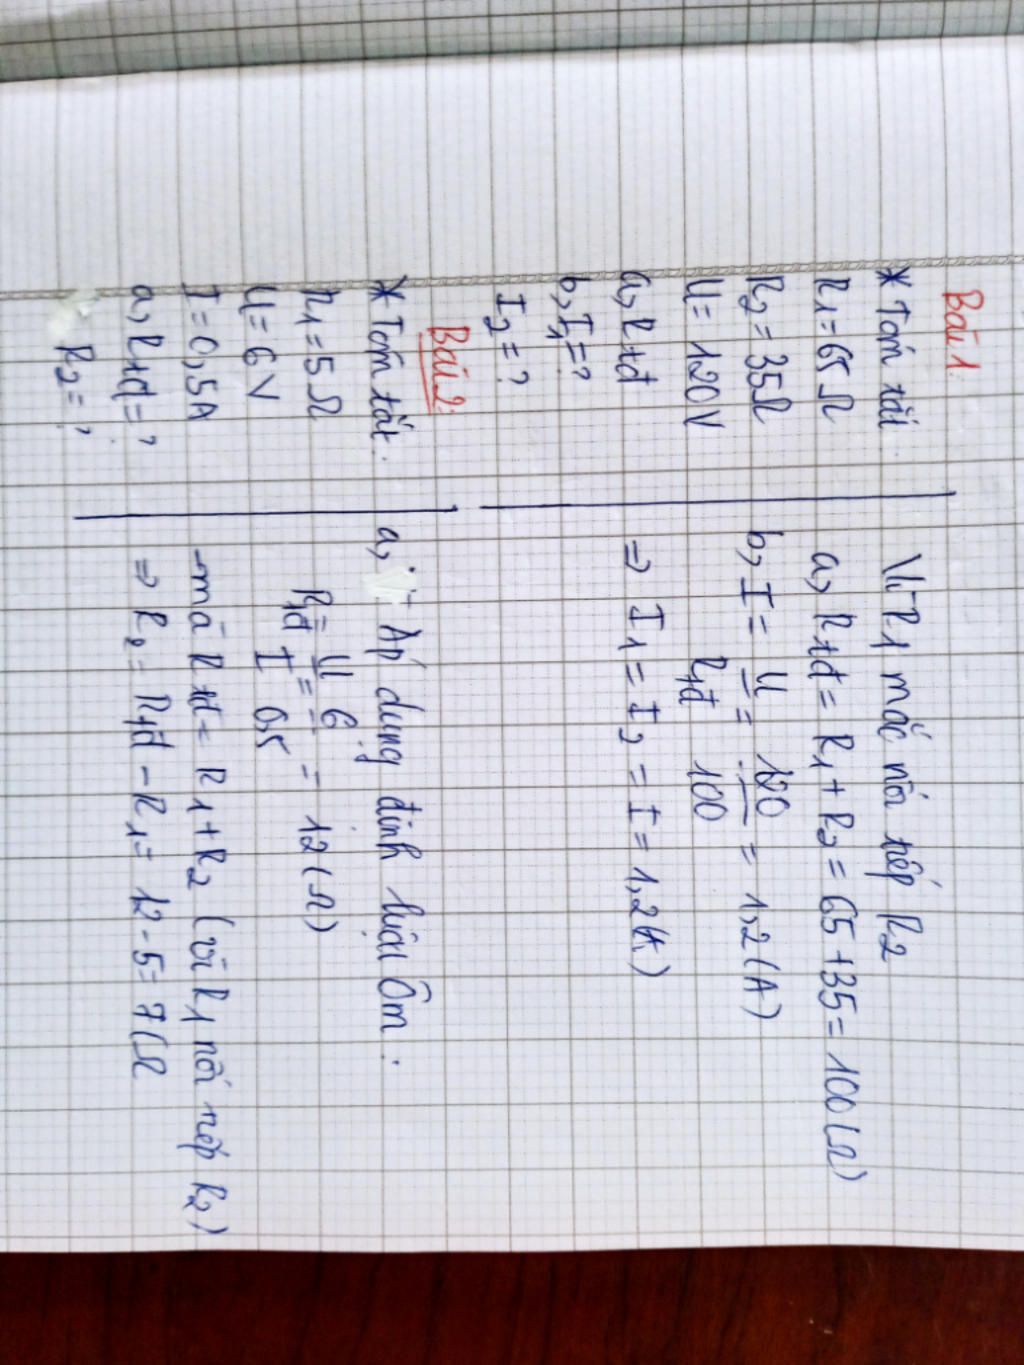 Bài 1.
* Tóm tắt.
R1 = 65 Ω
R2 = 35 Ω
U = 120V
a, Rtđ
b, I1 = ?
I2 = ?
Vì R1 mắc nối tiếp R2
a, Rtđ = R1 + R2 = 65 + 35 = 100 (Ω)
b, I = U/Rtđ = 120/100 = 1,2 (A)
⇒ I1 = I2 = I = 1,2 (A)
Bài 2:
* Tóm tắt.
R1 = 5 Ω
U = 6V
I = 0,5A
a, Rtđ = ?
R2 = ?
a, - Áp dụng định luật Ôm :
Rtđ = U/I = 6/0,5 = 12 (Ω)
- mà Rtđ = R1 + R2 (vì R1 nối tiếp R2)
⇒ R2 = Rtđ - R1 = 12 - 5 = 7 (Ω